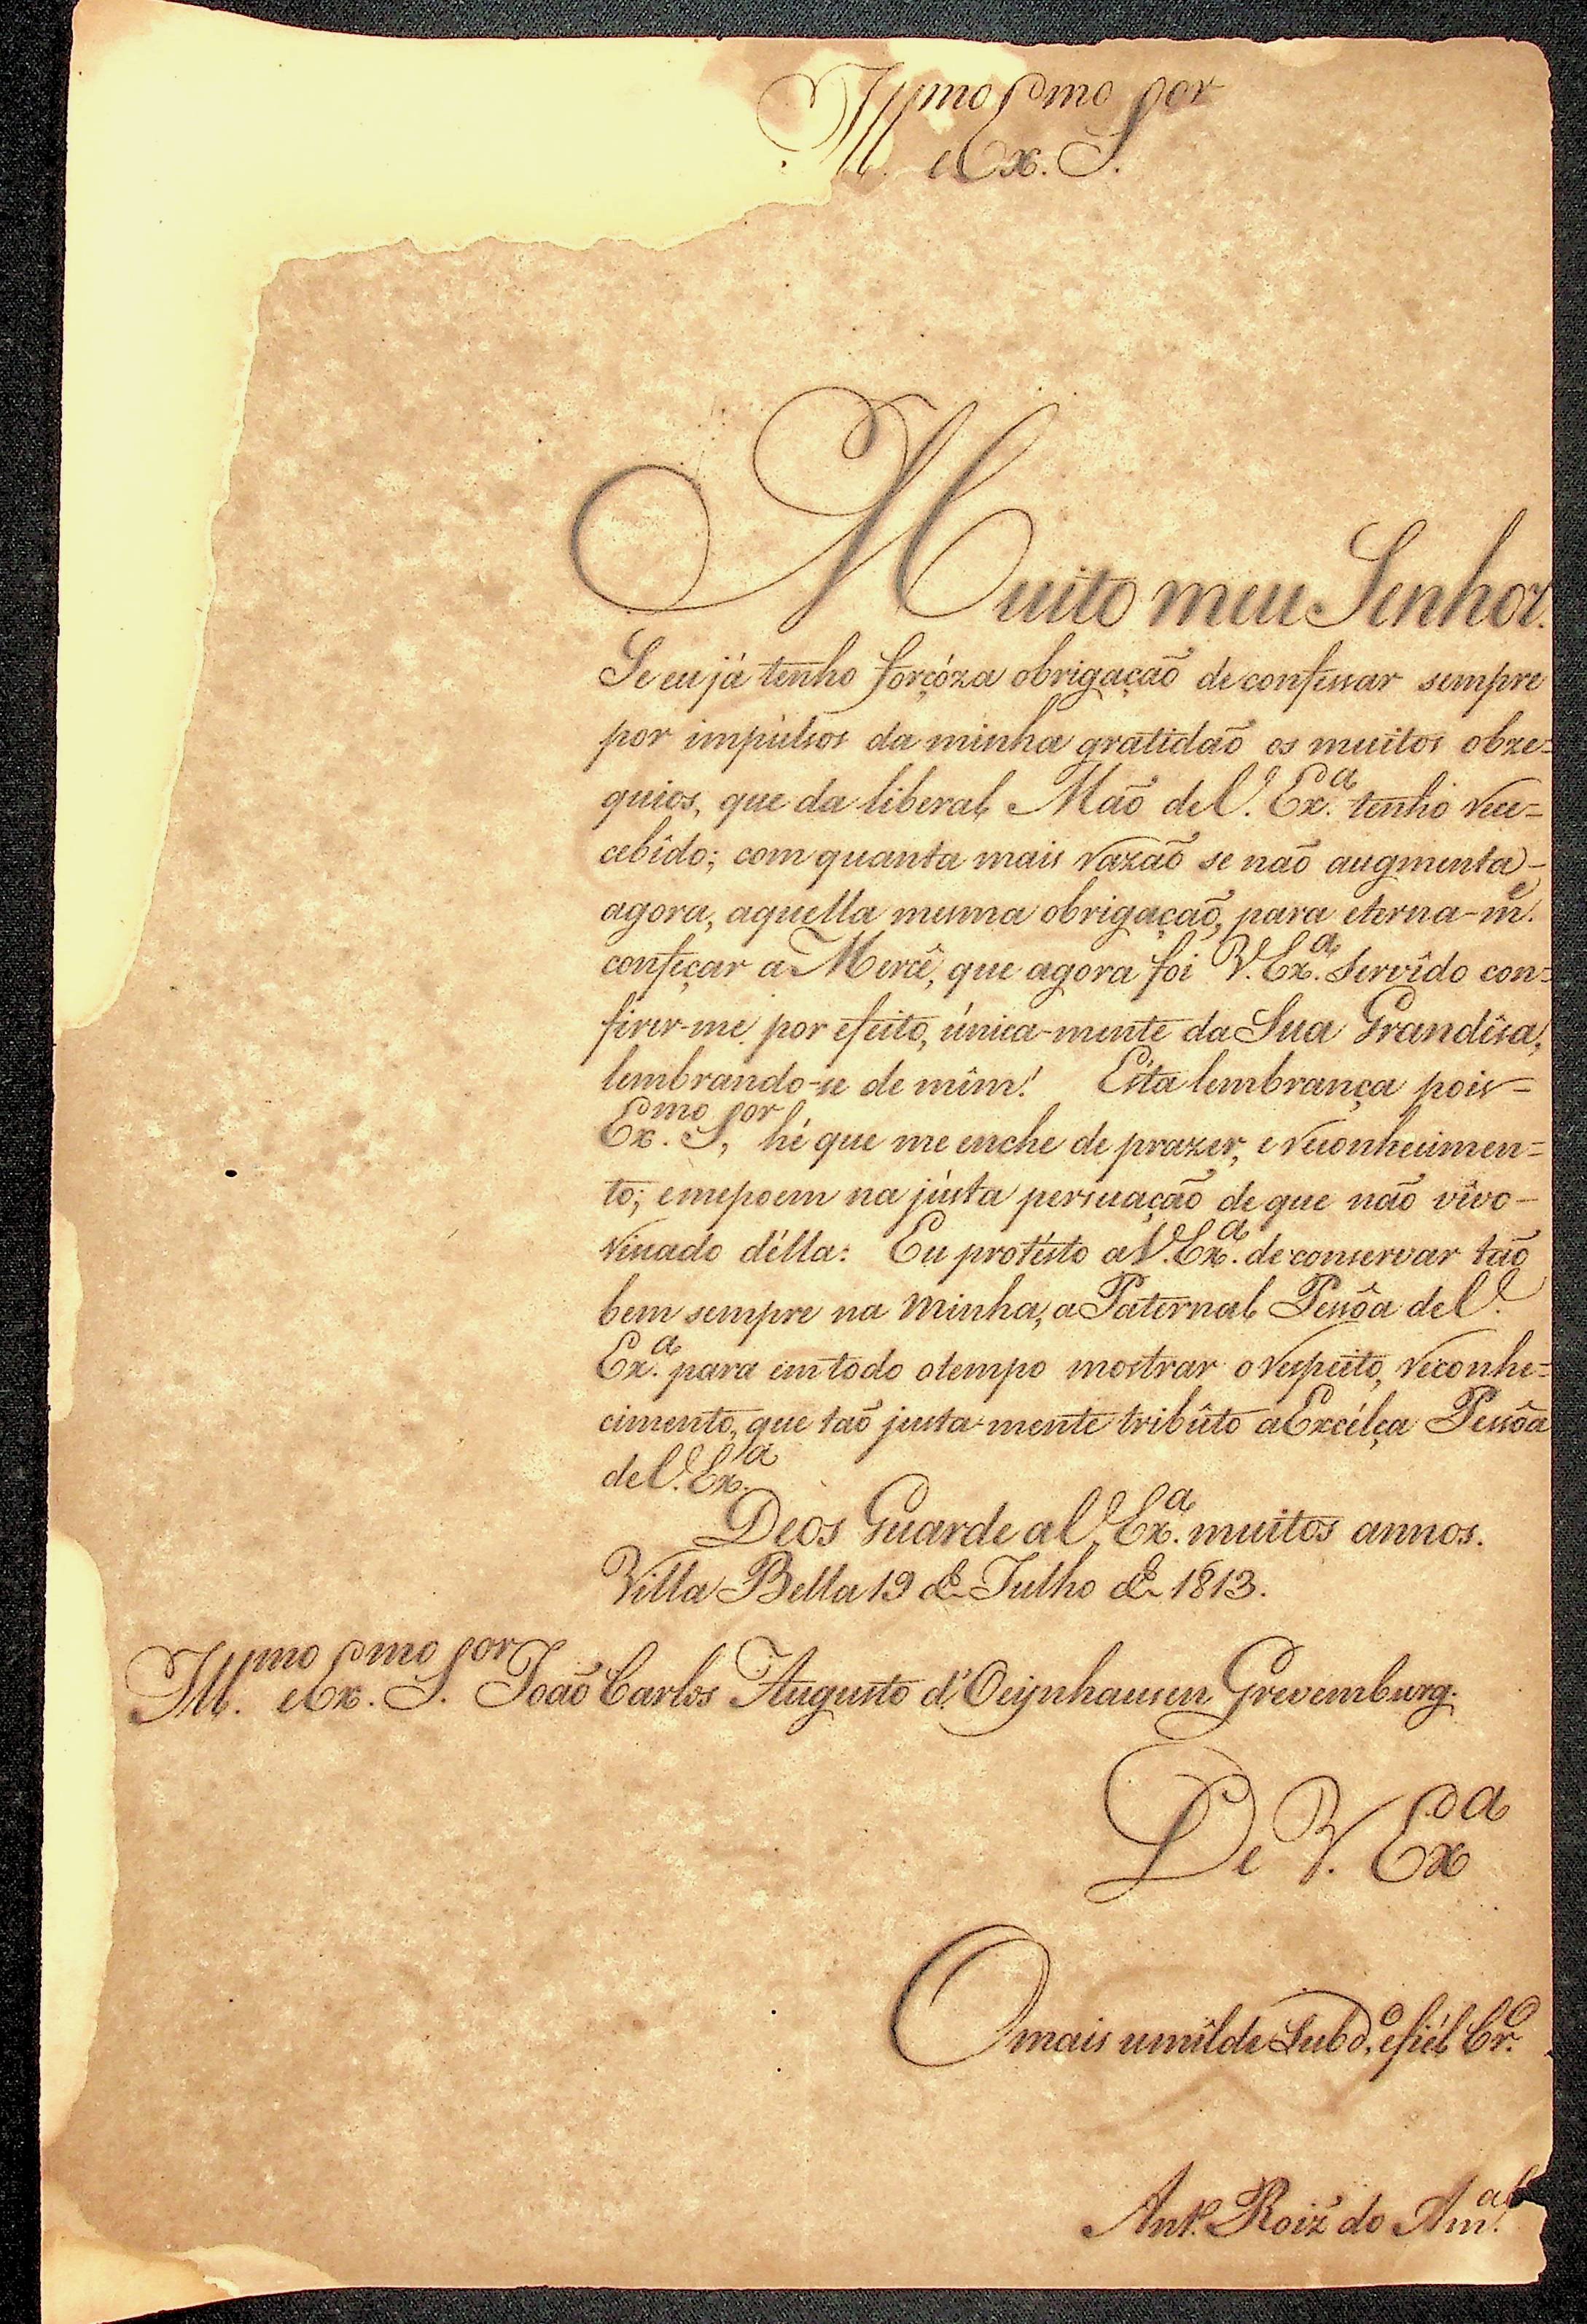 Ill.mo e Ex.mo S.or
Muito meu Senhor.
Se eu já tenho forçóza obrigação de confessar sempre
por impulsos da minha gratidão os muitos obze=
quios, que da liberal Mão de V. Ex.a tenho rece=
cebîdo; com quanta mais razão se não augmenta-
agora, aquella mesma obrigação, para eterna-m.e
confeçar a Mercê, que agora foi V. Ex.a Servîdo con=
firir-me por efeito, única-mente da Sua Grandêsa,
lembrando-se de mîm! Esta lembrança pois=
Ex.mo S.or, hé que me enche de prazer, e reconhecimen=
to; e me poem na jústa persuação de que não vîvo-
riscado délla: Eu protésto a V. Ex.a de conservar tão
bem sempre na minha, a Paternal Pessôa de V.
Ex.a para em todo o tempo mostrar o respeito, reconhe=
cimento, que taõ justa-mente tribûto a Excélça Pessôa
de V. Ex.a
Deos Guarde a V. Ex.a muitos annos.
Villa Bella 19 de Julho de 1813.
Ill.mo e Ex.mo S.or João Carlos Augusto d'Oeijnhausen Grevemburg.
De V. Ex.a
O mais umîlde Subd.o, e fiél Cr.o
Ant.o Roiz do Am.al